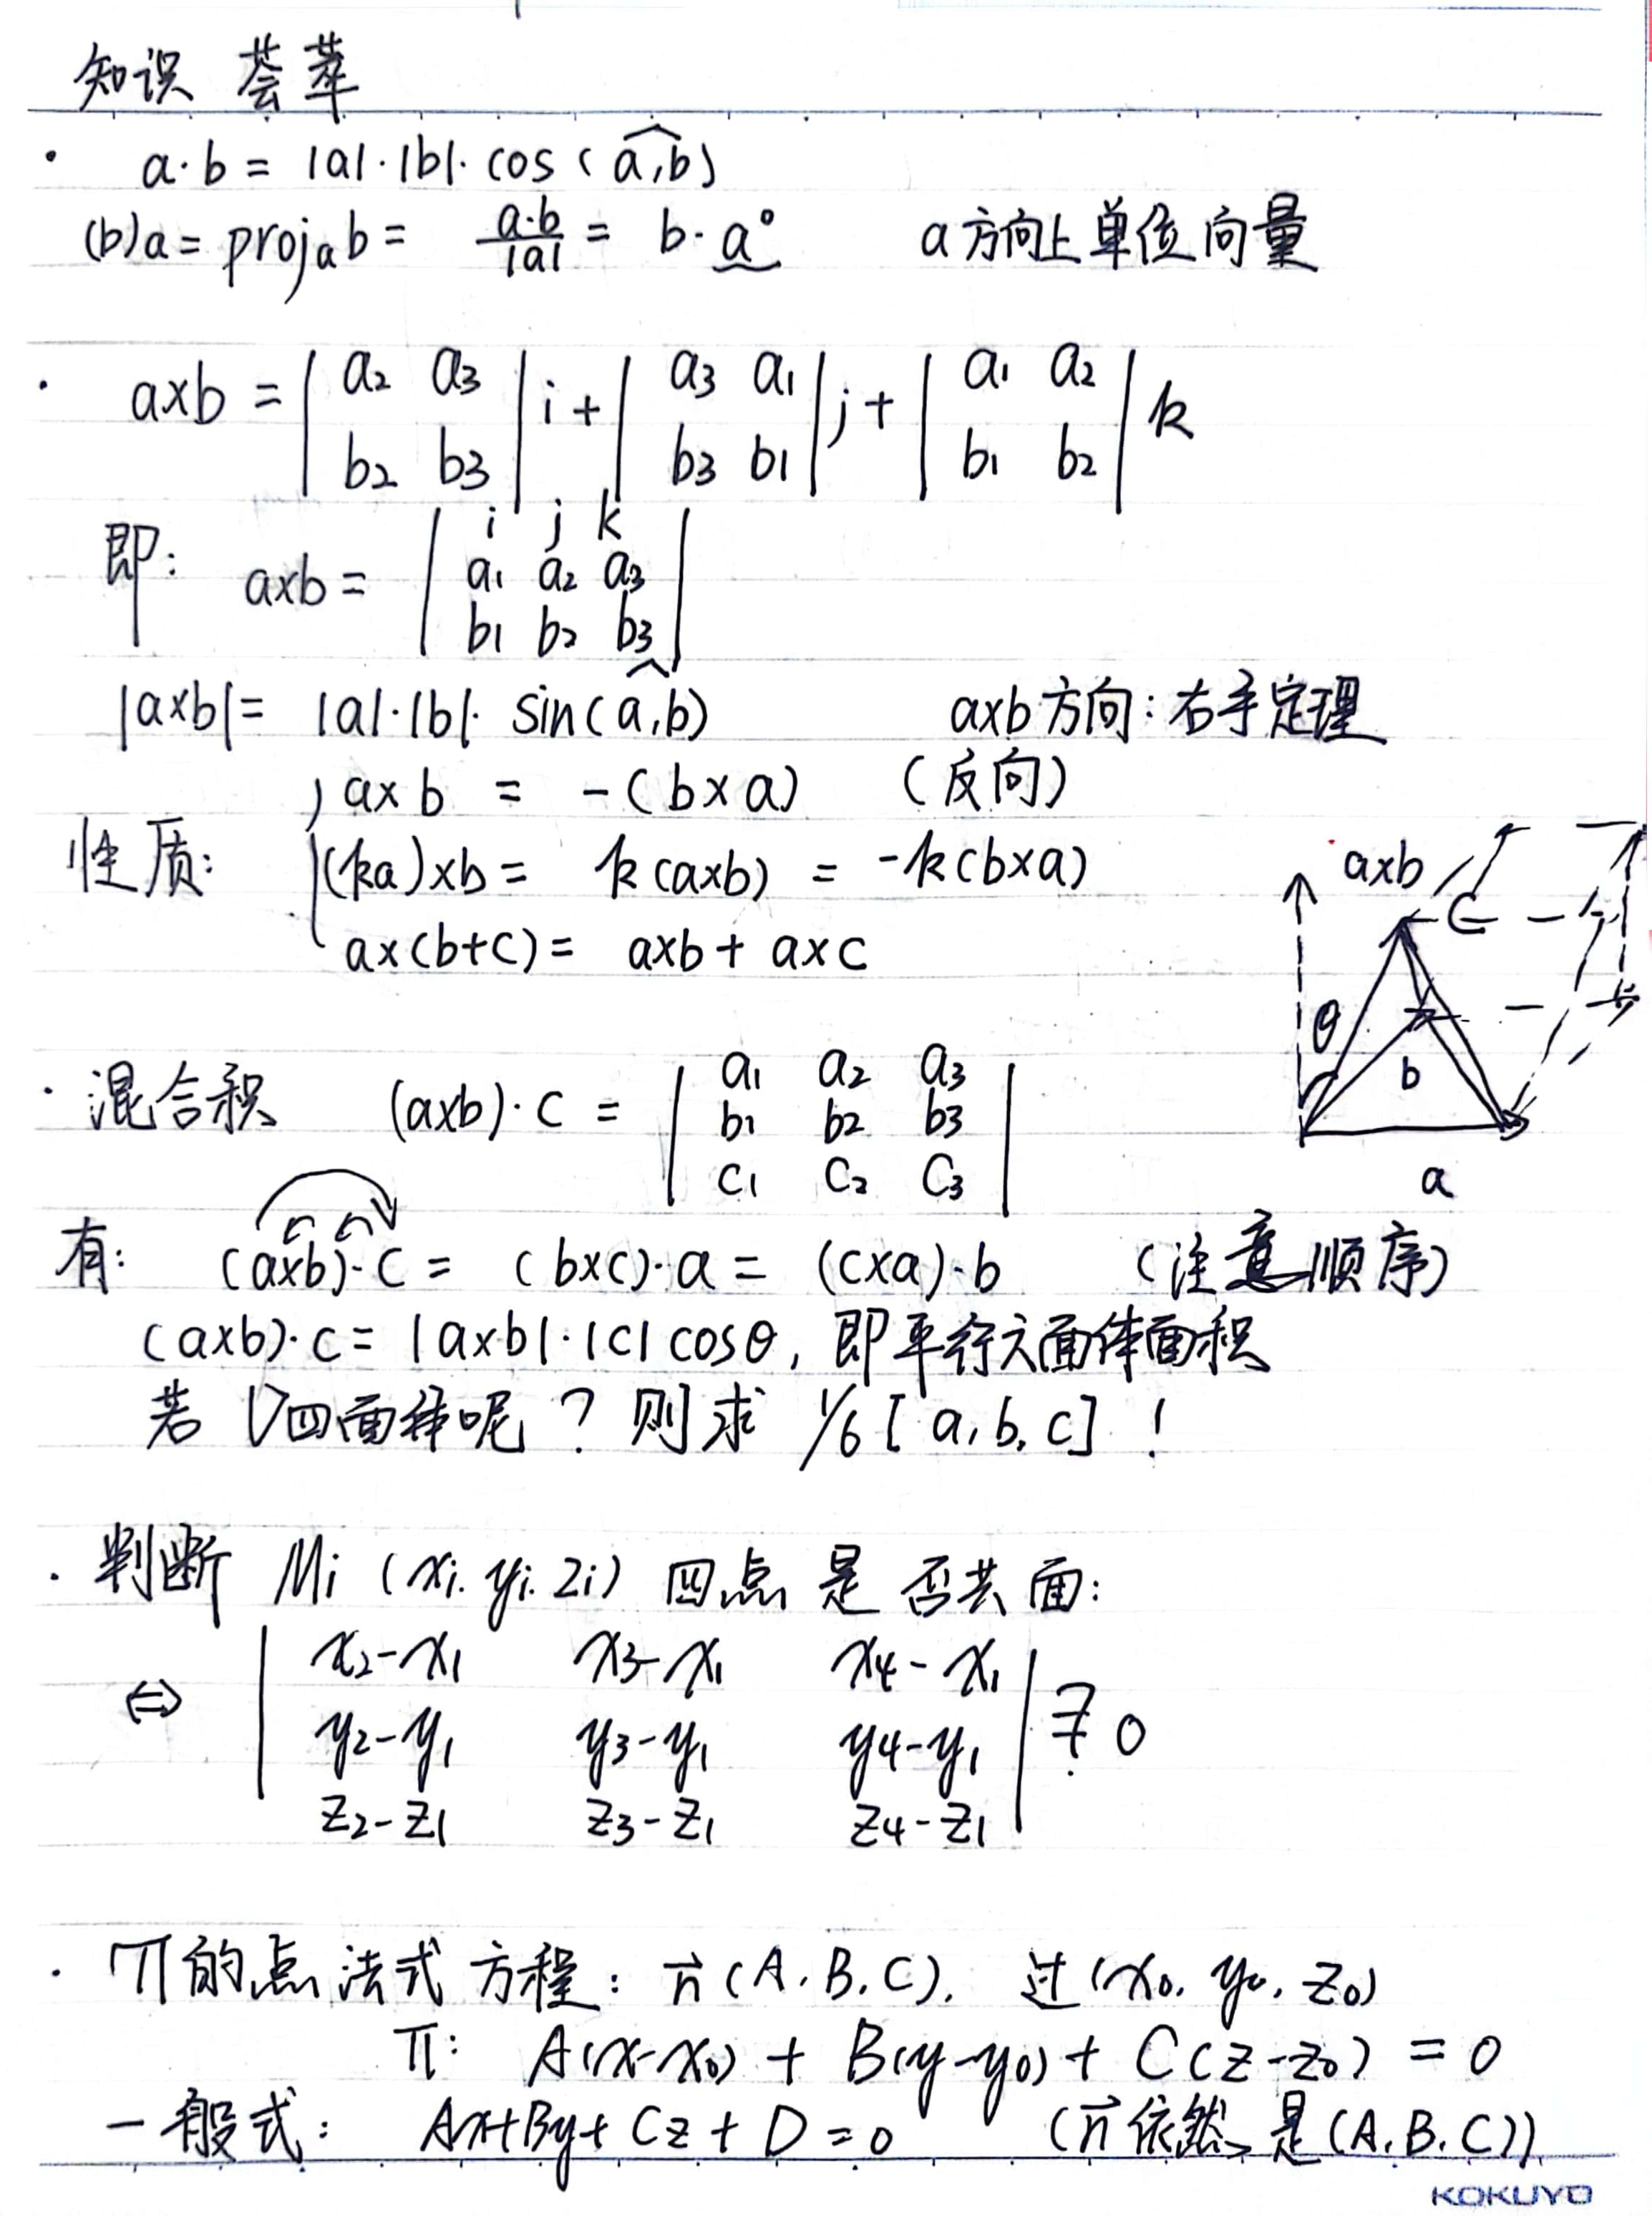 知识 荟萃
· a·b = |a|·|b|·cos(a,b)
(b)a = projₐb = a·b/|a| = b·a° a方向上单位向量
· a×b = | a₂ a₃ | i + | a₃ a₁ | j + | a₁ a₂ | k
b₂ b₃ b₃ b₁ b₁ b₂
即: a×b = | i j k |
a₁ a₂ a₃
b₁ b₂ b₃
|a×b| = |a|·|b|·sin(a,b) a×b方向:右手定理
a×b = -(b×a) (反向)
性质: (ka)×b = k(a×b) = -k(b×a)
a×(b+c) = a×b + a×c
a×b
c
θ
b
a
· 混合积 (a×b)·c = | a₁ a₂ a₃ |
b₁ b₂ b₃
c₁ c₂ c₃
有: (a×b)·c = (b×c)·a = (c×a)·b (注意顺序)
(a×b)·c = |a×b|·|c|cosθ, 即平行六面体面积
若 V四面体呢? 则求 1/6[a,b,c]!
· 判断 Mi (xi. yi. zi) 四点是否共面:
⇔ | x₂-x₁ x₃-x₁ x₄-x₁ |
y₂-y₁ y₃-y₁ y₄-y₁ 0
z₂-z₁ z₃-z₁ z₄-z₁
· π的点法式方程: n⃗(A.B.C). 过(x₀. y₀. z₀)
π: A(x-x₀) + B(y-y₀) + C(z-z₀) = 0
一般式: Ax+By+Cz+D=0 (n⃗依然是(A.B.C))
KOKUYO